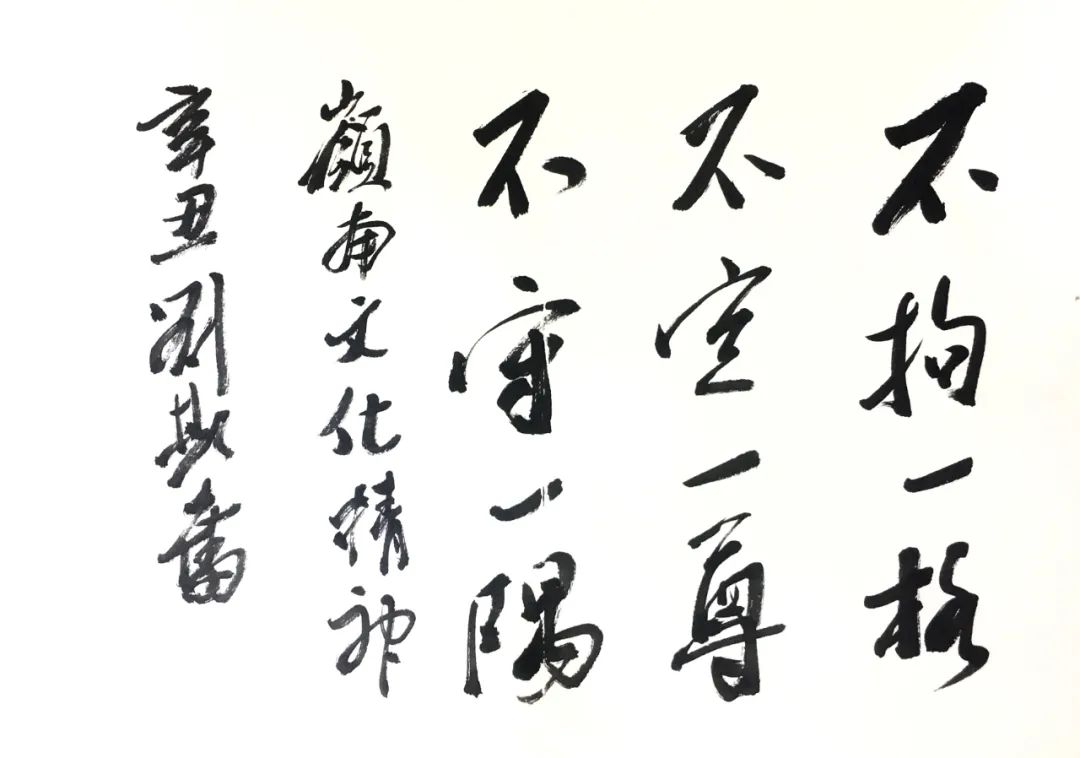 不拘一格
不定一尊
不守一隅
嶺南文化精神
辛丑劉斯奮